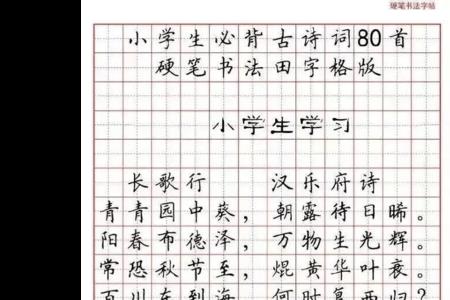 硬笔书法字帖
小学生必背古诗词80首
硬笔书法田字格版
小学生学习
长歌行 汉乐府诗
青青园中葵，朝露待日晞。
阳春布德泽，万物生光辉。
常恐秋节至，焜黄华叶衰。
百川东到海，何时复西归？